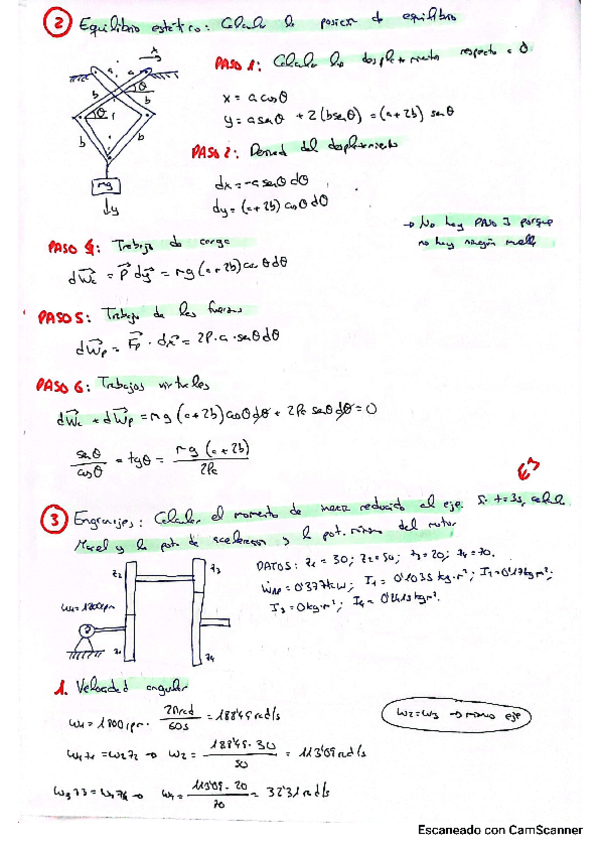 ② Equilibrio estático: Calcula la posición de equilibrio
PASO 1: Calcular los desplazamientos respecto a θ
x = a cosθ
y = a senθ + 2(b senθ) = (a+2b) senθ
PASO 2: Derivada del desplazamiento
dx = -a senθ dθ
dy = (a+2b) cosθ dθ
→ No hay PASO 3 porque
no hay ningún muelle
x
a
a
b
b
b
b
θ
θ
mg
y
PASO 4: Trabajo de carga
dWc = P dy = mg (a+2b) cosθ dθ
PASO 5: Trabajo de las fuerzas
dWp = Fp · dx = 2P·a·senθ dθ
PASO 6: Trabajos virtuales
dWc + dWp = mg (a+2b) cosθ dθ + 2Pa senθ dθ = 0
senθ/cosθ = tgθ = mg (a+2b)/2Pa
③ Engranajes: Calcular el momento de inercia reducido al eje. Si t=3s, calcula
Macel y la pot. de aceleracion y la pot. mínima del motor
DATOS: z1 = 30; z2 = 50; z3 = 20; z4 = 70.
I3 = 0 kg·m²;
z2
z3
z1
z4
1. Velocidad angular
ω1 = 1800 rpm · 2π rad/60s = 188'49 rad/s
ω2 = ω3 → mismo eje
ω1 z1 = ω2 z2 → ω2 = 188'49 · 30/50 = 113'09 rad/s
ω3 z3 = ω4 z4 → ω4 = 113'09 · 20/70 = 32'31 rad/s
Escaneado con CamScanner